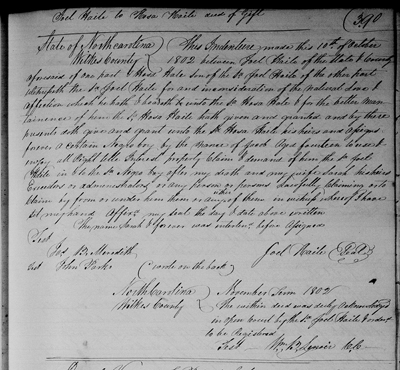 Joel Haile to Hosa Haile deed of Gift
390
State of Northcarolina This Indenture made this 10th of October
Wilkes County 1802 between Joel Haile of the State & County
aforesaid of one part & Hosa Haile son of the Sd Joel Haile of the other part
Witnesseth the Sd Joel Haile for and inconsideration of the Natural Love &
affection which he hath & beareth to unto the Sd Hosa Hale & for the better main
tainence of him the Sd Hosa Haile hath given and granted and by these
presents doth give and grant unto the Sd Hosa Haile his heirs and assigns
forever a Certain Negro boy by the name of Jacob Aged fourteen to use &
enjoy all Right Title Interest property Claim & demand of him the Sd Joel
Haile in & to the Sd Negro boy after my death and my wife Sarah his heirs
Executors or administrators or any person or persons Lawfully claiming or to
Claim by from or under him them or any of them in witness whereof I have
set my hand Affixd my seal the day & date above written
The name Sarah & forever was interlined before Assigned
Test
Jos B. Meredith Joel Haile Seal
Test John Parke (words on the back)
North Carolina November Term 1802
Wilkes County The within deed was duly Acknowledged
in open Court by the Sd Joel Haile & ordered
to be Registered
Test Wm B Lenoir CC